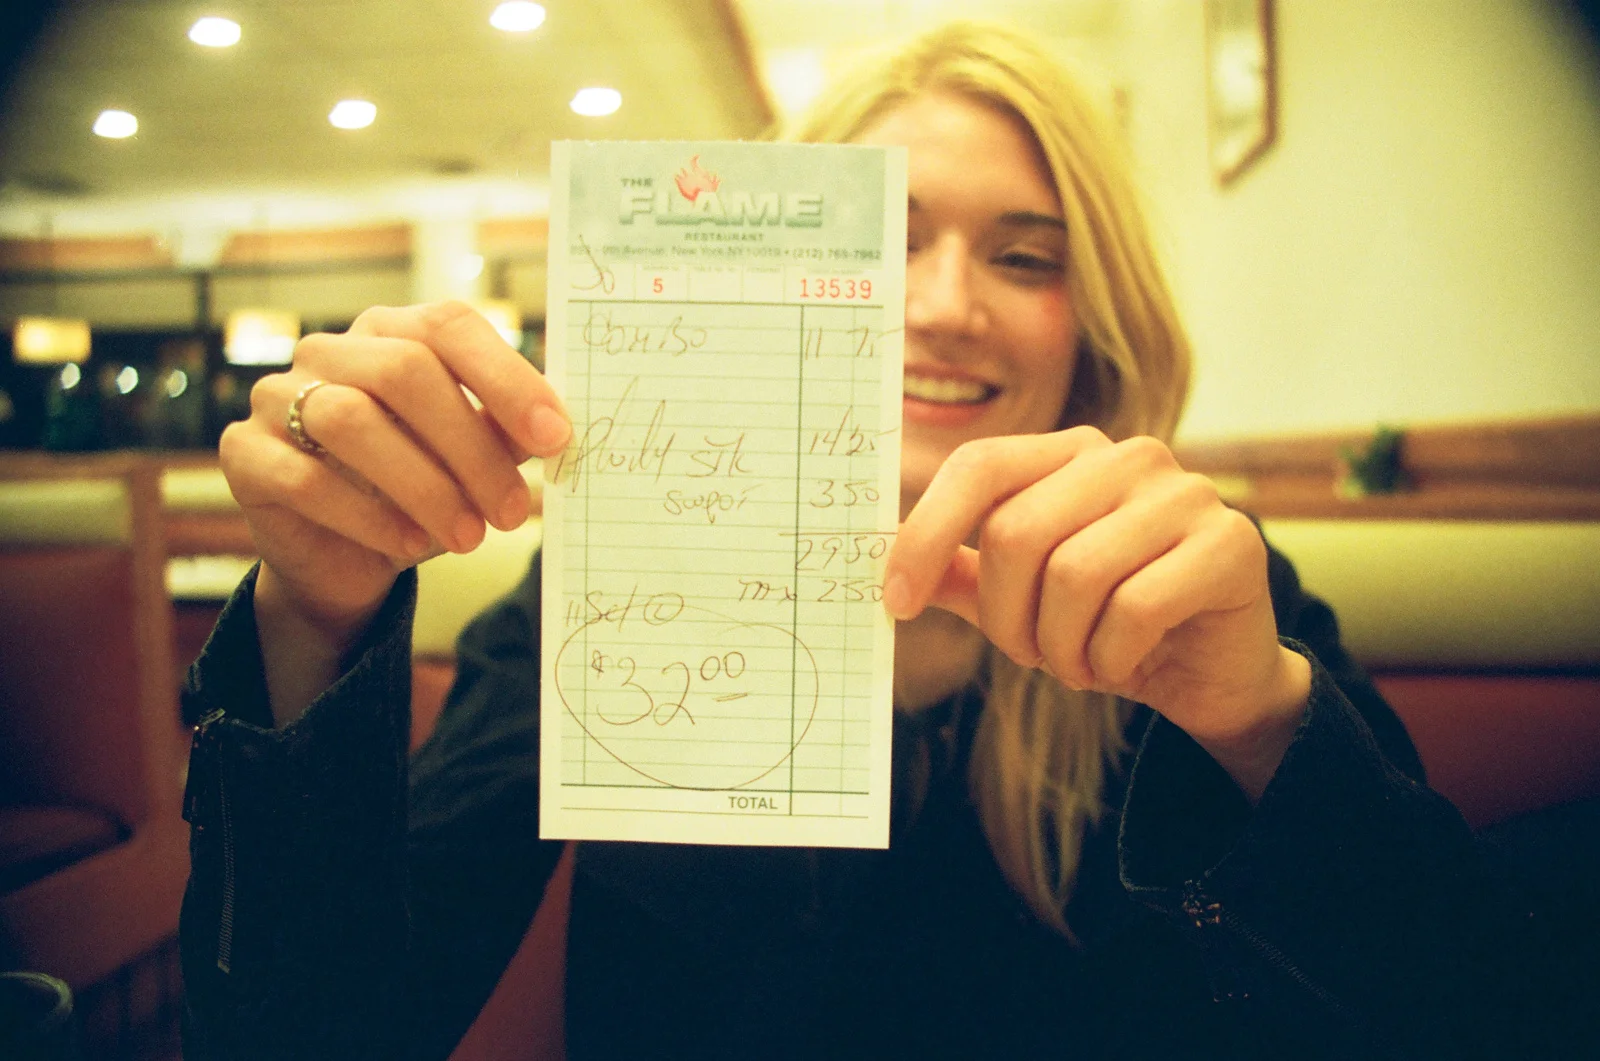 THE
FLAME
RESTAURANT
Avenue, New York NY 10019 • (212) 765-7962
5 13539
COMBO 11 75
Philly STK 14/25
350
2950
TAX 250
$32 00
TOTAL